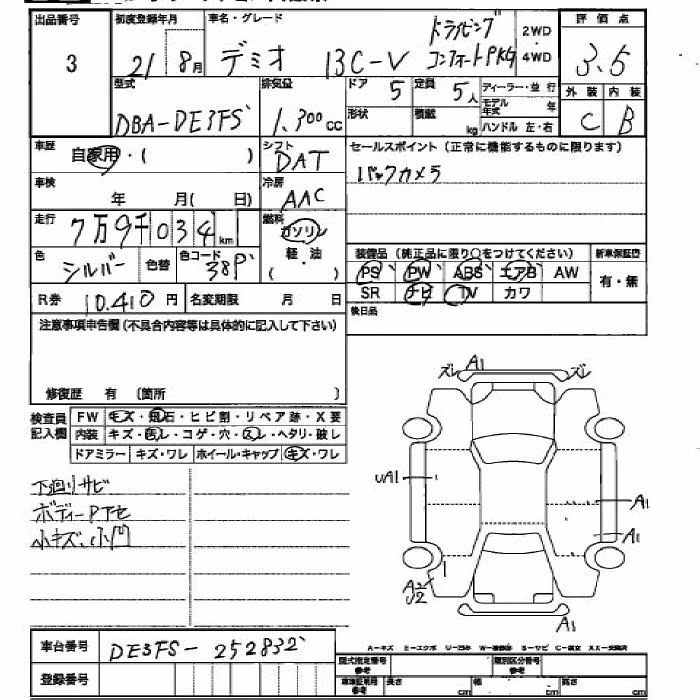 出品番号 初度登録年月 車名・グレード 評価点
3 21 8月 デミオ 13C-V ドライビング コンフォートPKG 2WD・4WD 3.5
型式 排気量 ドア 5 定員 5人 ディーラー・並行 外装 内装
DBA-DE3FS 1.300cc 形状 積載 kg モデル年式 年 ハンドル 左・右 C B
車歴 自家用・( ) シフト DAT セールスポイント (正常に機能するものに限ります)
バックカメラ
車検 年 月( 日) 冷房 AAC
走行 7万9千034km 燃料 ガソリン
軽・油
( )
色 シルバー 色替 色コード 38P
装備品 (純正品に限り○をつけてください) 新車保証書
PS PW ABS エアB AW 有・無
SR ナビ TV カワ
R券 10.410円 名変期限 月 日 後日品
注意事項申告欄(不具合内容等は具体的に記入して下さい)
修復歴 有 〔箇所 〕
検査員記入欄 FW キズ・飛石・ヒビ割・リペア跡・X要
内装 キズ・汚レ・コゲ・穴・スレ・ヘタリ・破レ
ドアミラー キズ・ワレ ホイール・キャップ キズ・ワレ
下廻りサビ
ボディーPアセ
小キズ、小凹
ズレ A1 ズレ
UA1 A1
A1
A2
U2
A1
A-キズ E-エクボ U-凹み W-補修跡 S-サビ C-腐食 XX-交換済
車台番号 DE3FS-252832
登録番号
型式指定番号 参考 類別区分番号 参考
車車証専用 参考 長さ cm 幅 cm 高さ cm